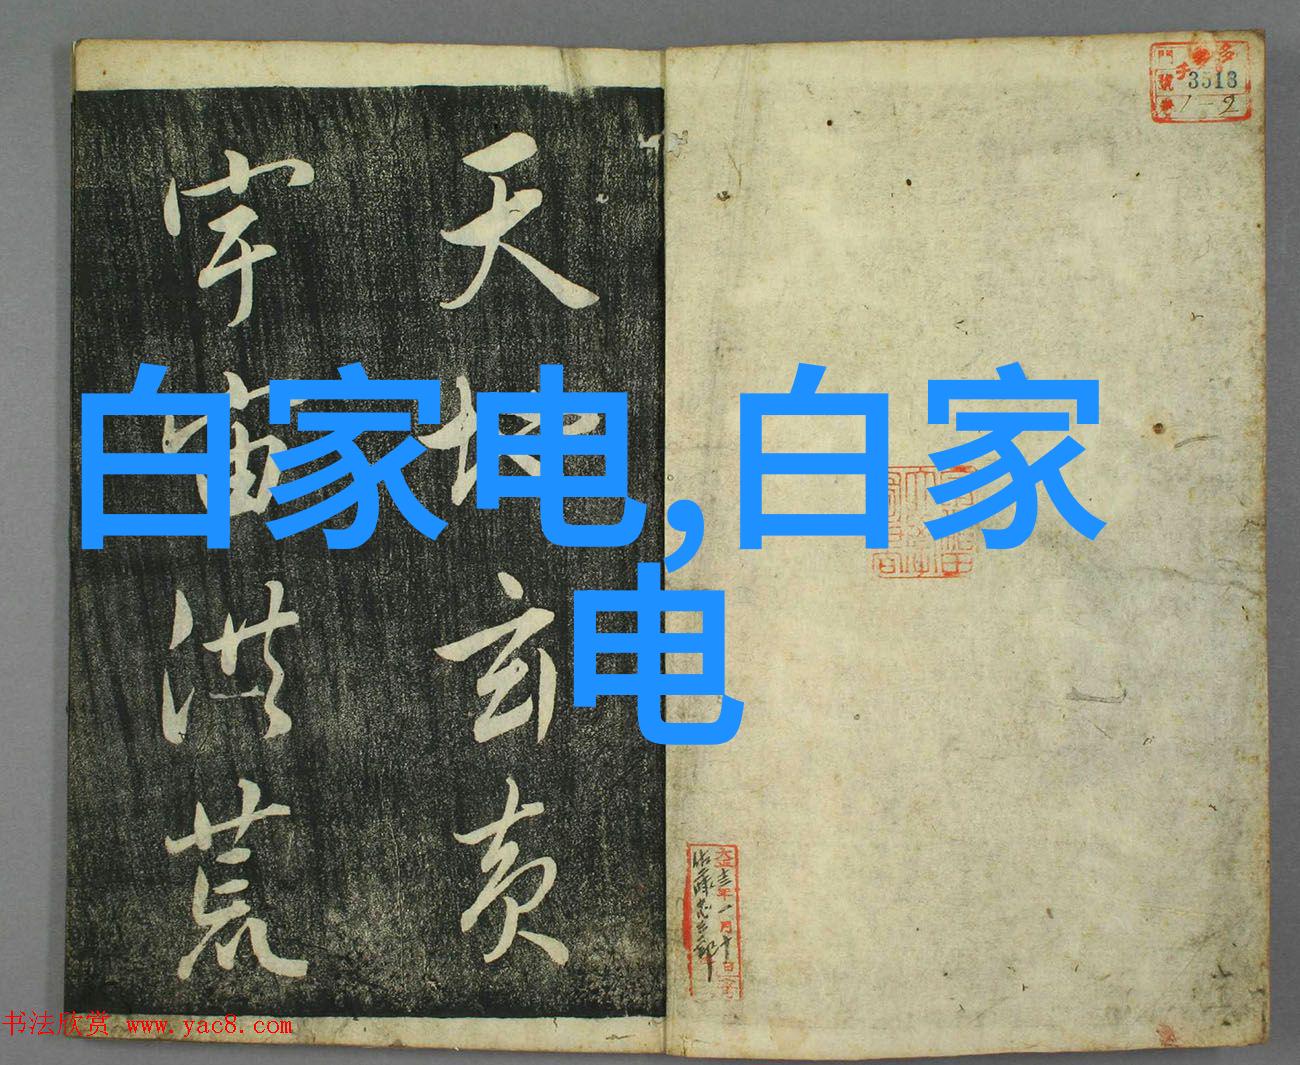 白家电,白家
电
天地玄黄
宇宙洪荒
书法欣赏 www.yac8.com